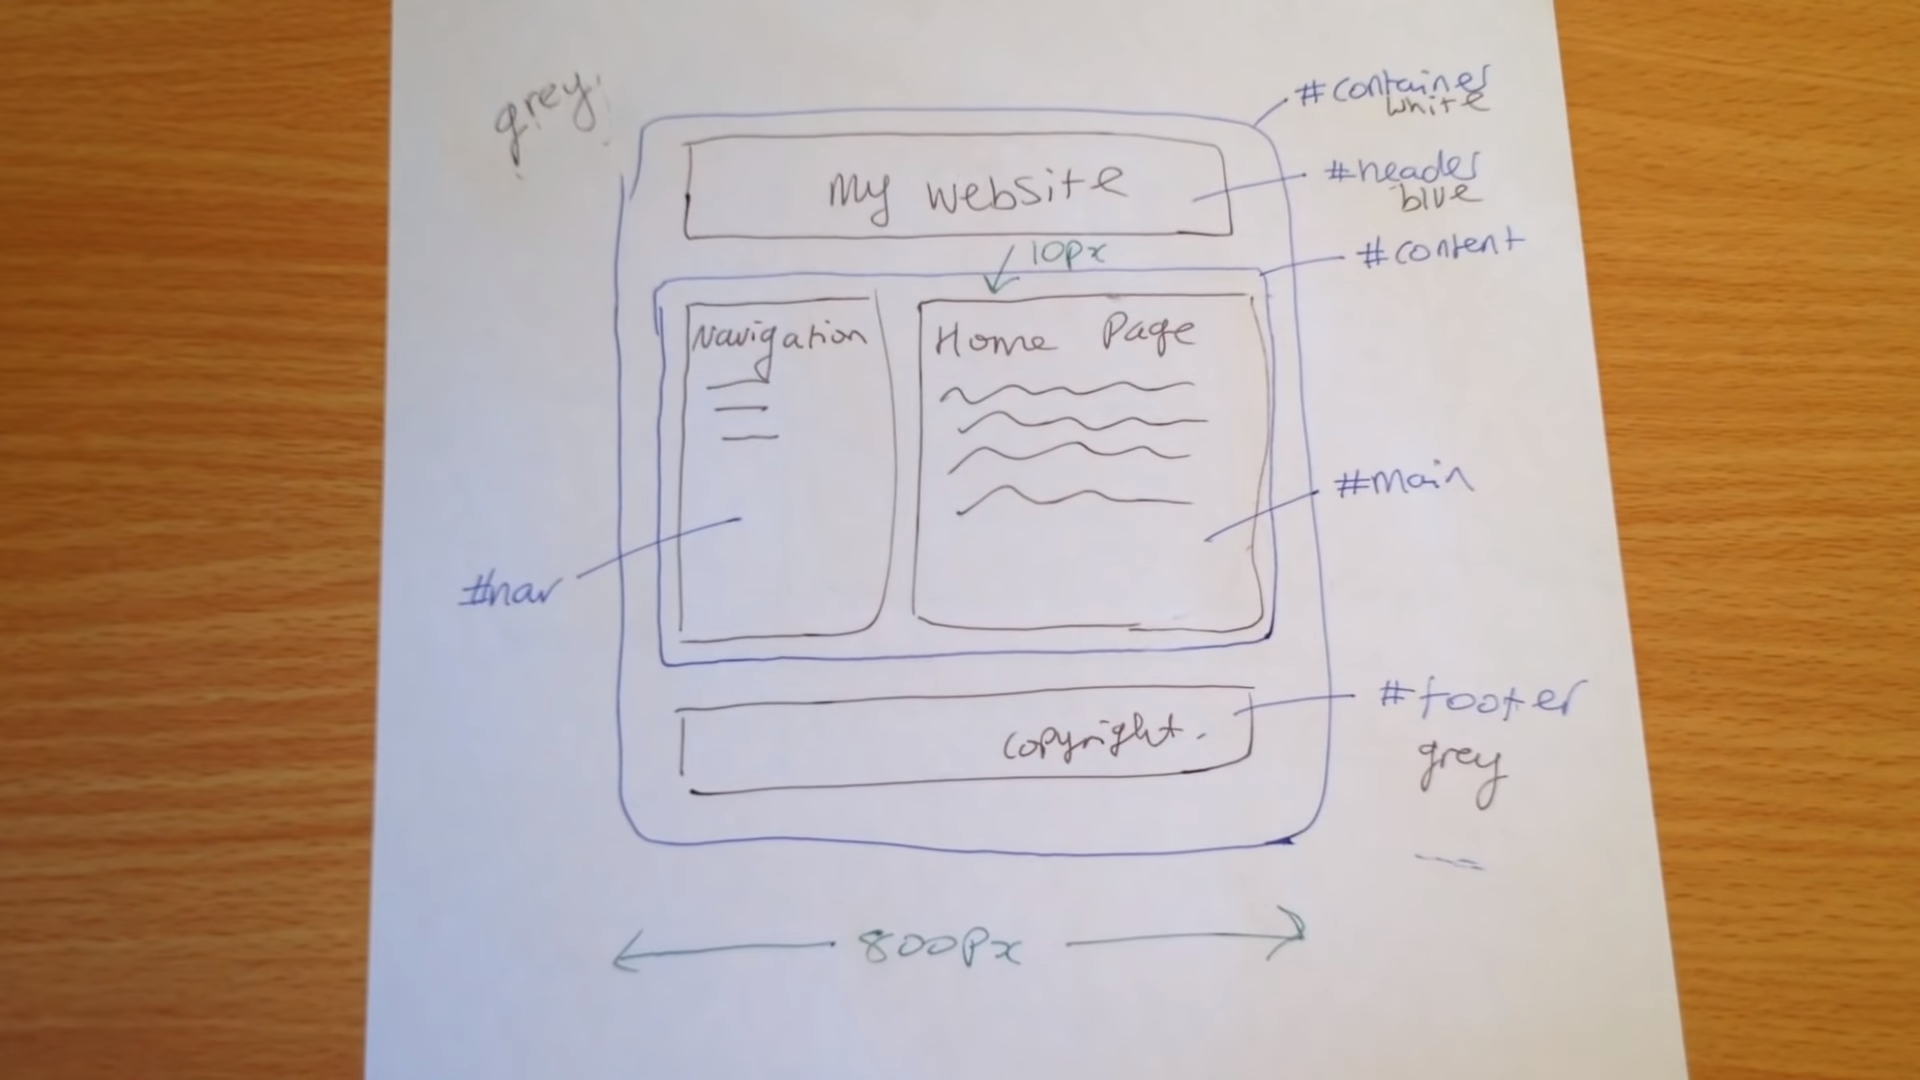 grey
#container
white
My website
#header
blue
10px
#content
Navigation
Home Page
#main
#nav
#footer
copyright.
grey
800px